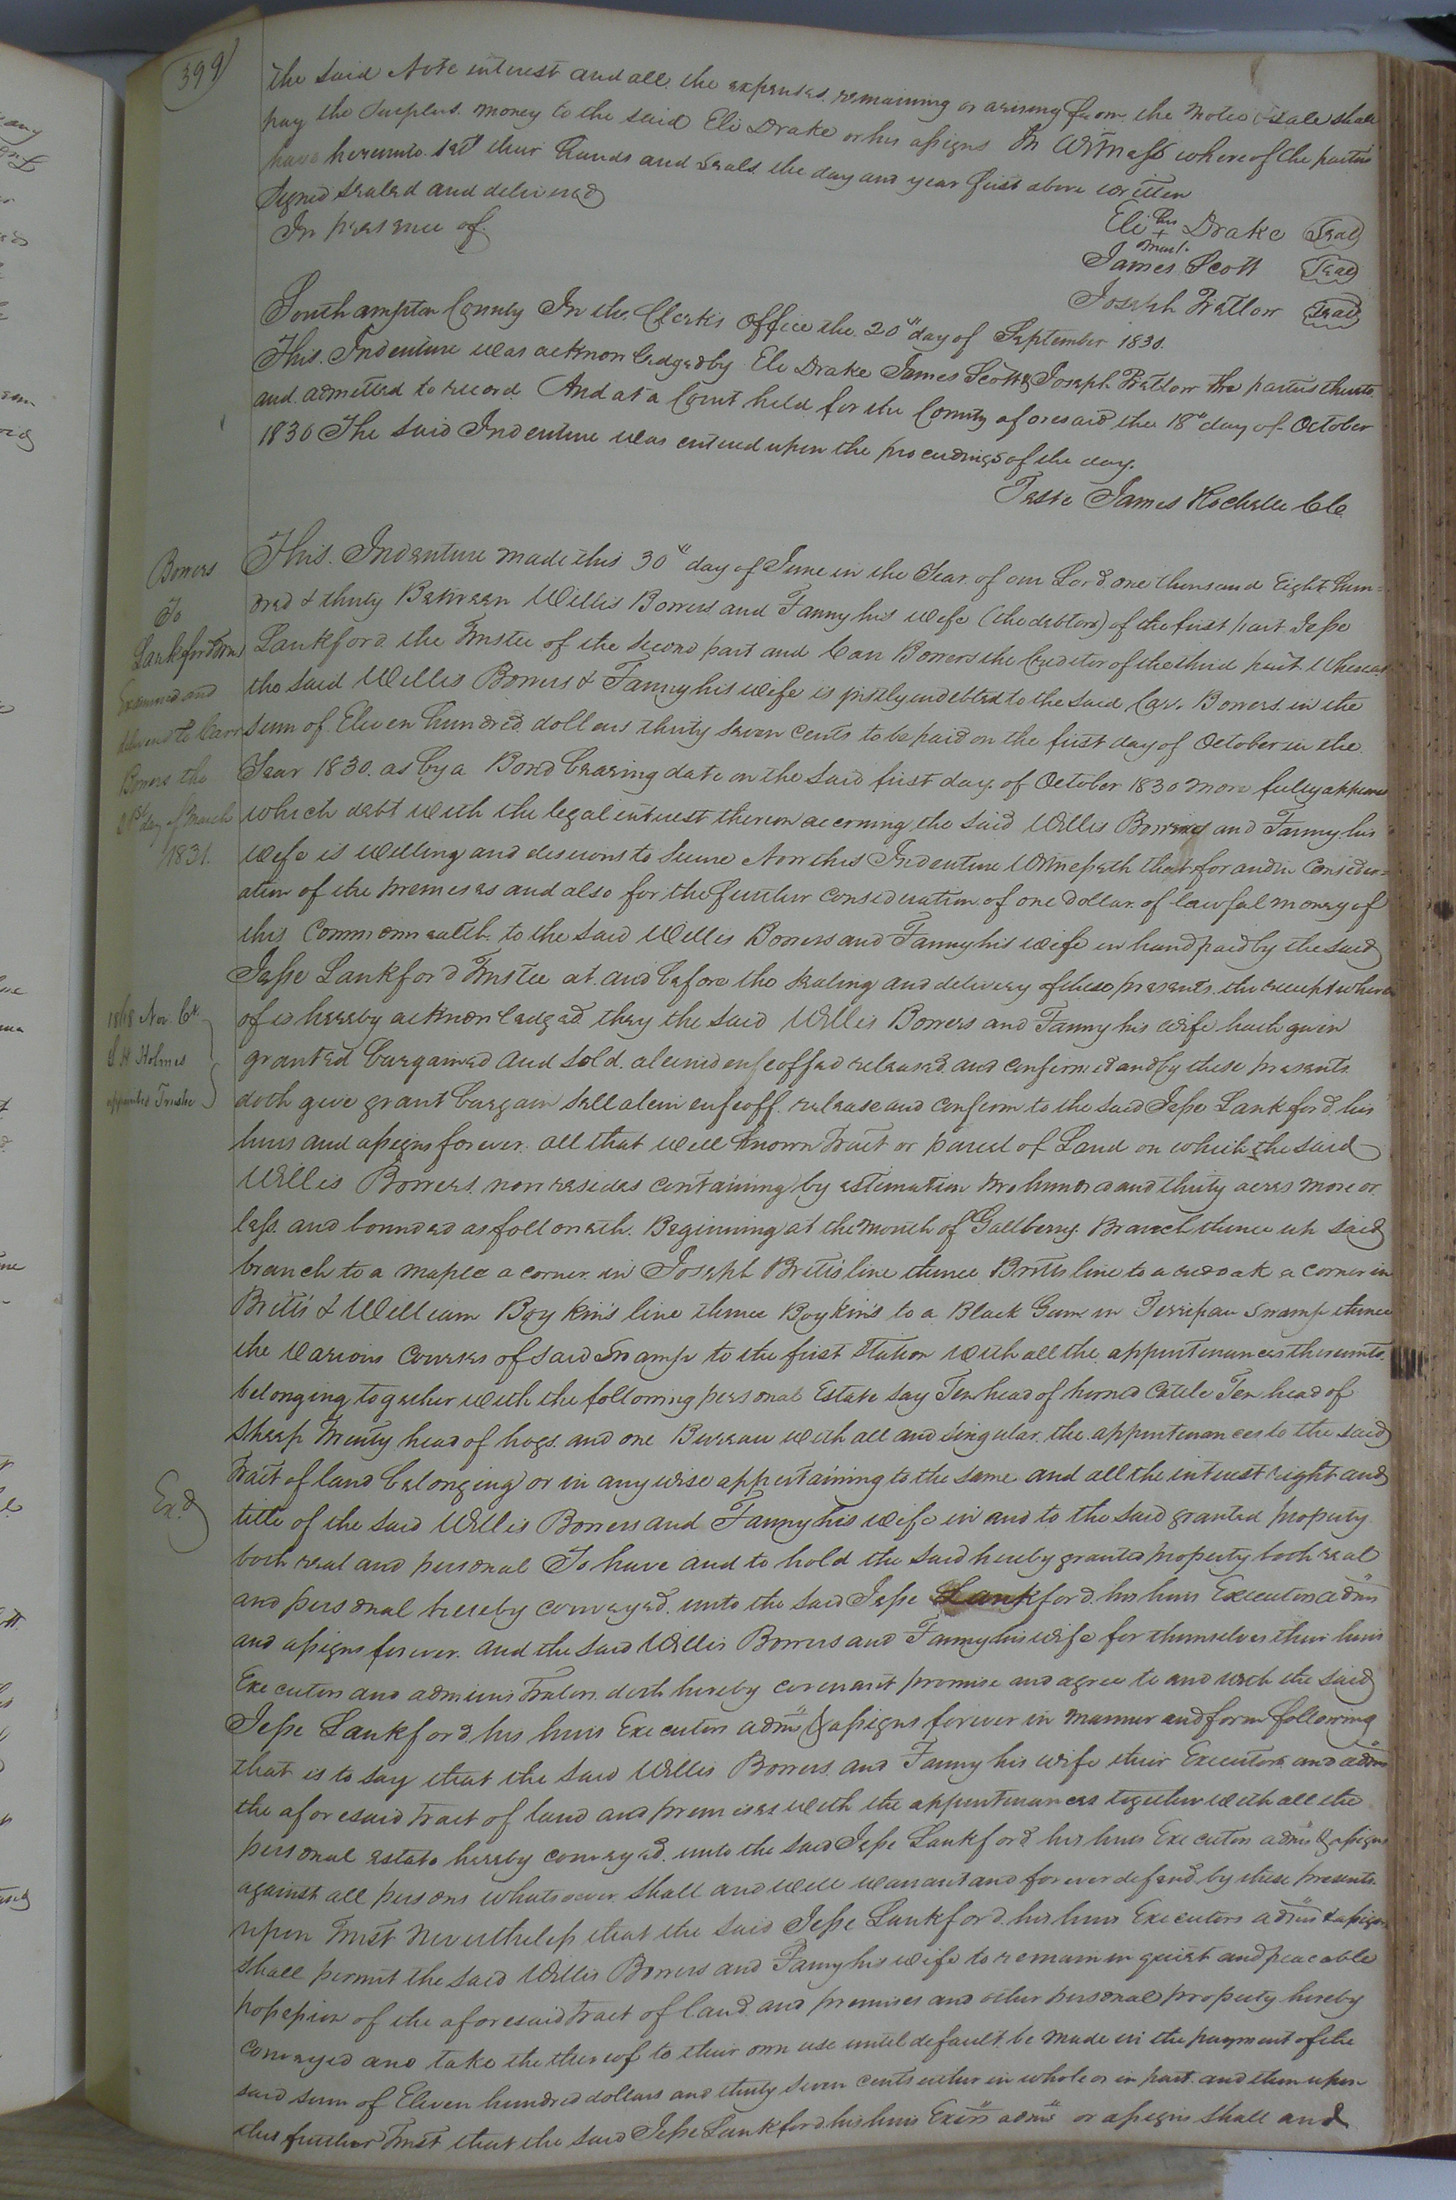 399
the said Note interest and all the expenses remaining or arising from the notice & sale shall
pay the Surplus money to the said Eli Drake or his assigns In Witness whereof the parties
have hereunto set their hands and seals the day and year first above written
Signed sealed and delivered
In presence of
Eli his + mark Drake Seal
James Scott Seal
Joseph Pretlow Seal
Southampton County In the Clerks Office the 20th day of September 1830.
This Indenture was acknowledged by Eli Drake James Scott & Joseph Pretlow the parties thereto
and admitted to record And at a Court held for the County aforesaid the 18th day of October
1830 The said Indenture was entered upon the proceedings of the day.
Teste James Rochelle ClC.
Bowers
To
Lankford Trus
Examined and
deliverd to Carr
Bowers the
day of March
1831.
This Indenture made this 30th day of June in the Year of our Lord one thousand Eight hun=
dred & thirty Between Willis Bowers and Fanny his wife (the debtors) of the first part Jesse
Lankford the Trustee of the second part and Carr Bowers the Creditor of the third part Whereas
the said Willis Bowers & Fanny his wife is justly indebted to the said Carr Bowers in the
sum of Eleven hundred dollars thirty seven cents to be paid on the first day of October in the
Year 1830. as by a Bond bearing date on the said first day of October 1830 more fully appears
which debt with the legal interest thereon accruing the said Willis Bowers and Fanny his
wife is willing and desirous to secure Now this Indenture Witnesseth that for and in consider=
ation of the premises and also for the further consideration of one dollar of lawful money of
this Commonwealth to the said Willis Bowers and Fanny his wife in hand paid by the said
Jesse Lankford Trustee at and before the sealing and delivery of these presents the receipt where
of is hereby acknowledged they the said Willis Bowers and Fanny his wife hath given
granted bargained and sold aliened enfeoffed released and confirmed and by these presents
doth give grant bargain sell alein enfeoff release and confirm to the said Jesse Lankford his
heirs and assigns forever all that well known Tract or parcel of Land on which the said
Willis Bowers now resides containing by estimation two hundred and thirty acres more or
less and bounded as followeth Beginning at the mouth of Gallberry Branch thence up said
branch to a maple a corner in Joseph Britts line thence Britts line to a red oak a corner in
Britts & William Boykins line thence Boykins to a Black Gum in Terripan Swamp thence
the various courses of said Swamp to the first Station with all the appurtenances thereunto
belonging together with the following personal Estate say Ten head of horned Cattle Ten head of
Sheep Twenty head of hogs and one Bureau with all and singular the appurtenances to the said
tract of land belonging or in any wise appertaining to the same and all the interest right and
title of the said Willis Bowers and Fanny his wife in and to the said granted property
both real and personal To have and to hold the said hereby granted property both real
and personal hereby conveyed unto the said Jesse Lankford his heirs Executors adms
and assigns forever and the said Willis Bowers and Fanny his wife for themselves their heirs
Executors and administrators doth hereby covenant promise and agree to and with the said
Jesse Lankford his heirs Executors adms & assigns forever in manner and form following
that is to say that the said Willis Bowers and Fanny his wife their Executors and adms
the aforesaid tract of land and premises with the appurtenances together with all the
personal estate hereby conveyed unto the said Jesse Lankford his heirs Executors adms & assigns
against all persons whatsoever shall and will warrant and forever defend by these presents
upon Trust Nevertheless that the said Jesse Lankford his heirs Executors adms & assigns
shall permit the said Willis Bowers and Fanny his wife to remain in quiet and peaceable
possession of the aforesaid tract of land and premises and other personal property hereby
conveyed and take the thereof to their own use until default be made in the payment of the
said sum of Eleven hundred dollars and thirty seven cents either in whole or in part and then upon
this further Trust that the said Jesse Lankford his heirs Exors adms or assigns shall and
1868 Nov Ct
Holmes
appointed Trustee
Exd